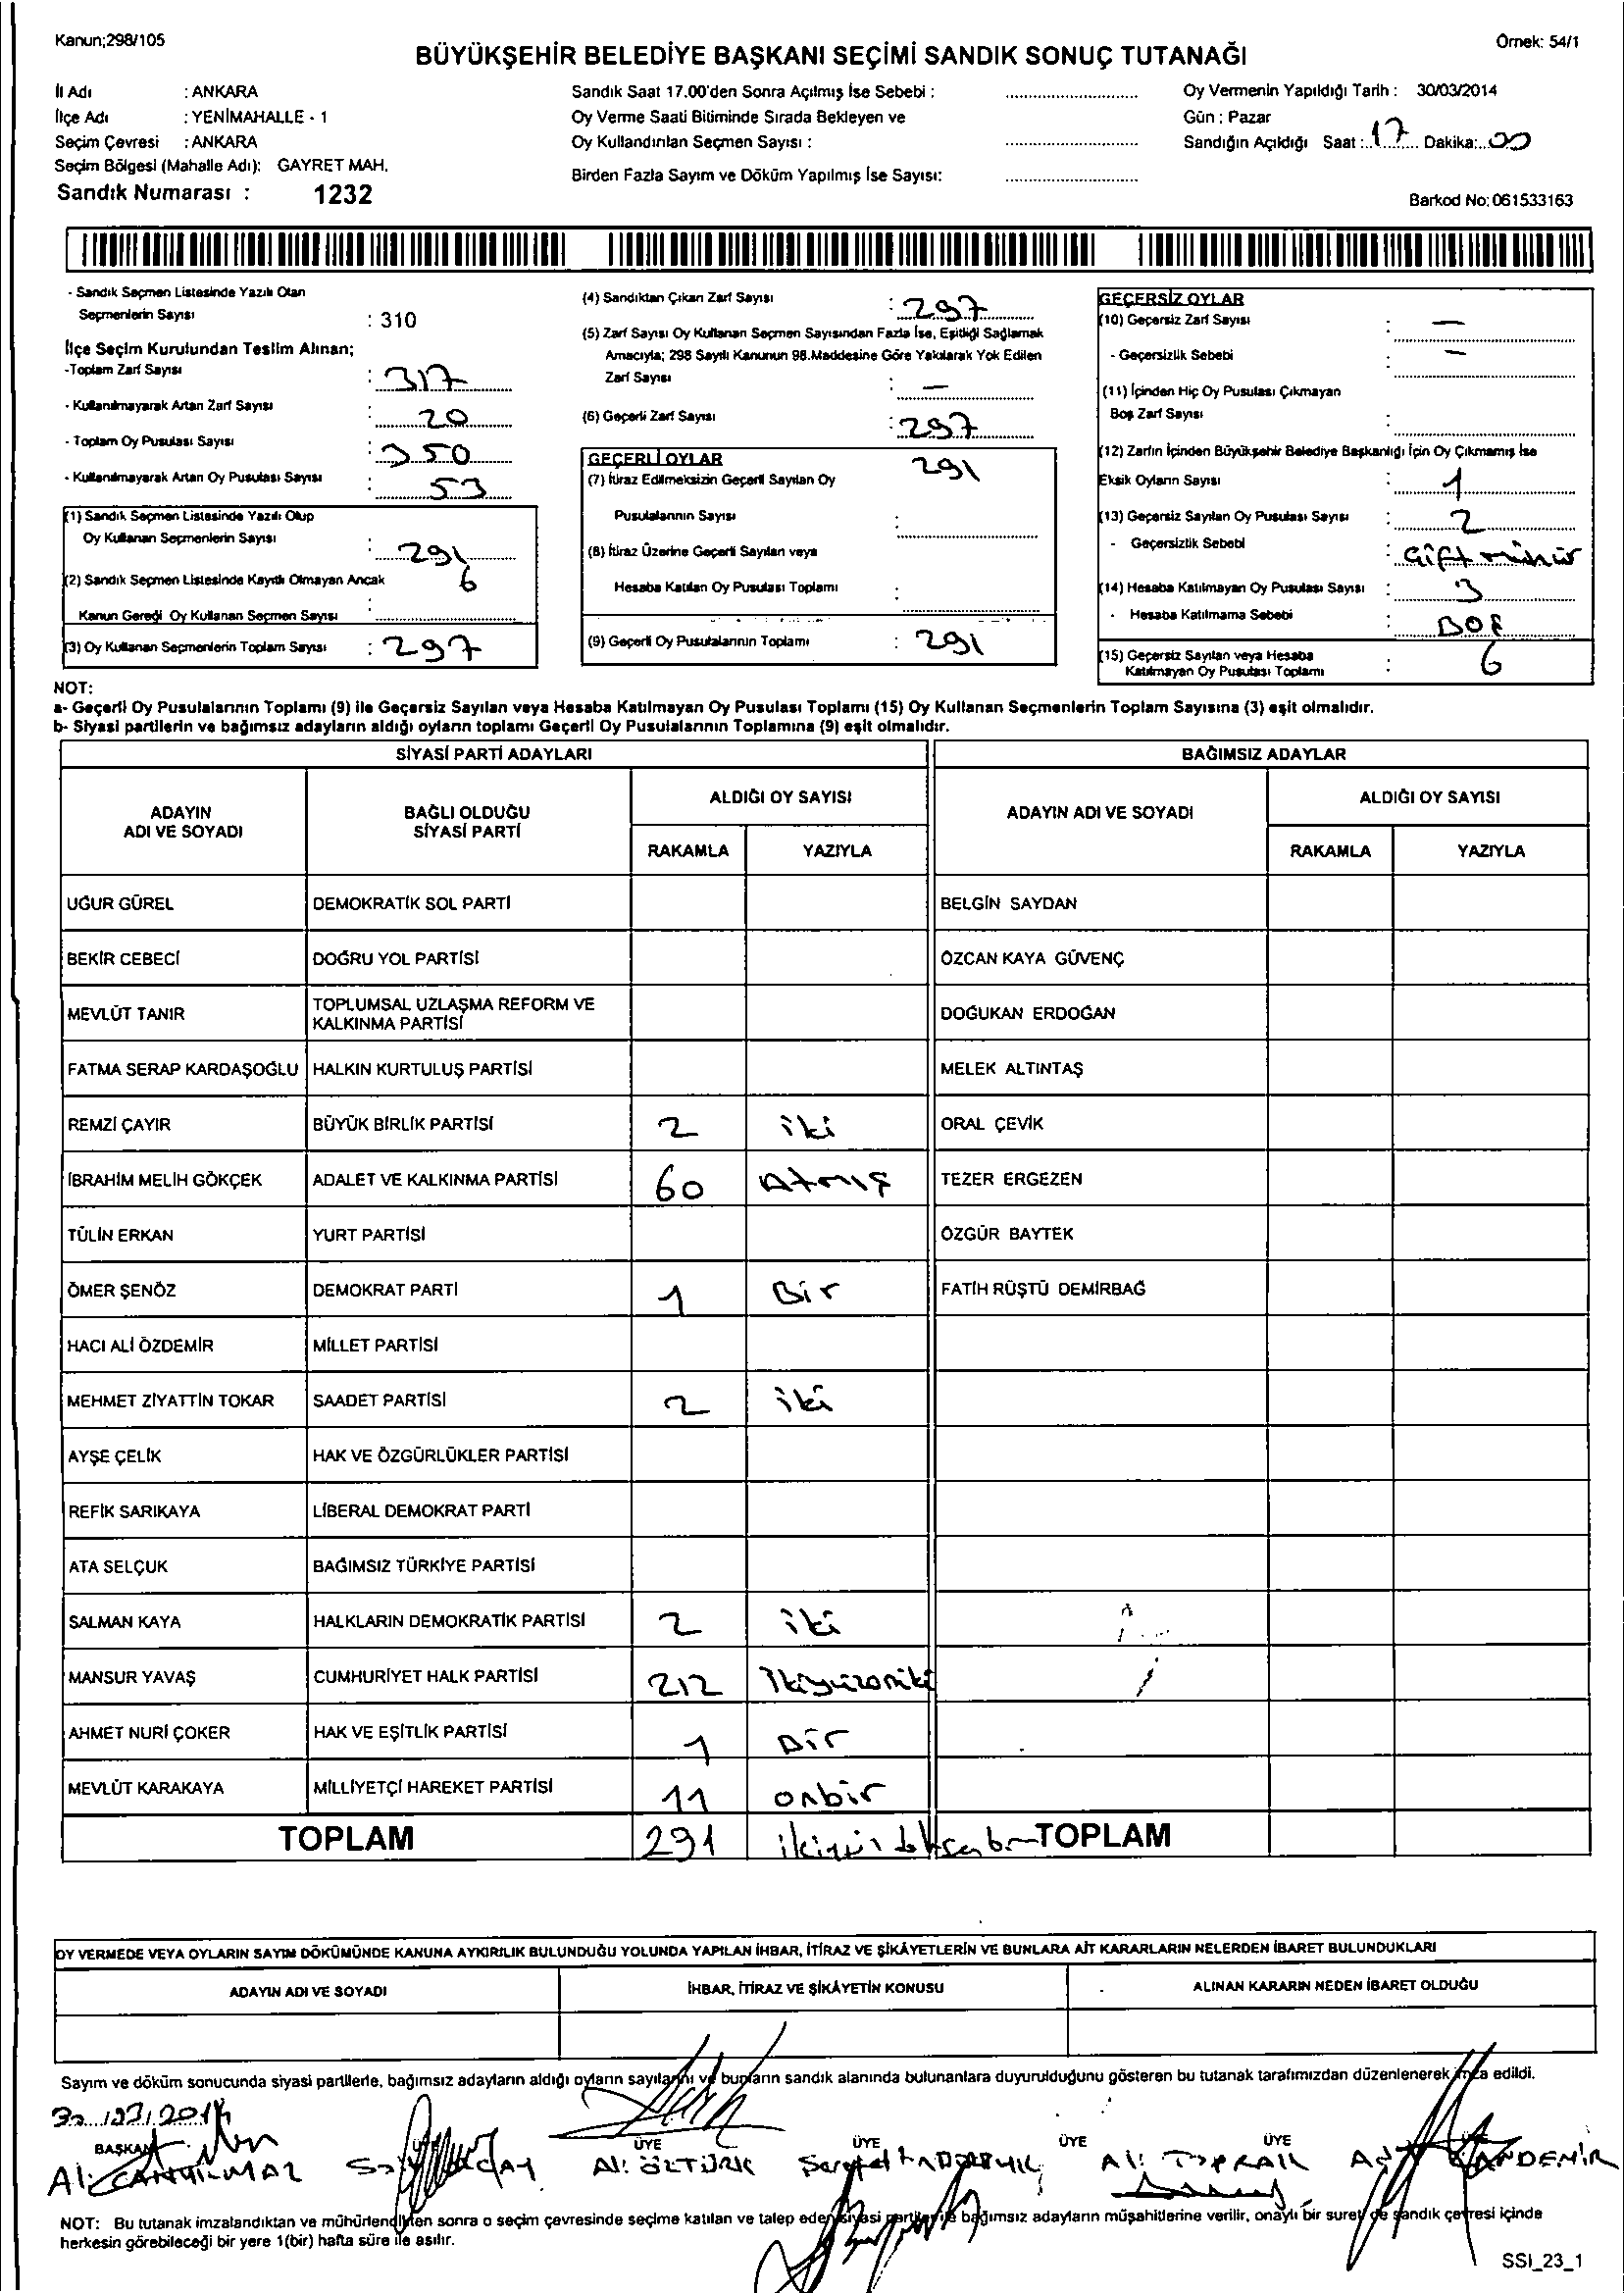 Kanun;298/105
Örnek: 54/1
BÜYÜKŞEHİR BELEDİYE BAŞKANI SEÇİMİ SANDIK SONUÇ TUTANAĞI
İl Adı : ANKARA
İlçe Adı : YENİMAHALLE - 1
Seçim Çevresi : ANKARA
Seçim Bölgesi (Mahalle Adı): GAYRET MAH.
Sandık Numarası : 1232
Sandık Saat 17.00'den Sonra Açılmış İse Sebebi :
Oy Verme Saati Bitiminde Sırada Bekleyen ve
Oy Kullandırılan Seçmen Sayısı :
Birden Fazla Sayım ve Döküm Yapılmış İse Sayısı:
Oy Vermenin Yapıldığı Tarih : 30/03/2014
Gün : Pazar
Sandığın Açıldığı Saat : 17 Dakika: 00
Barkod No: 061533163
- Sandık Seçmen Listesinde Yazılı Olan
Seçmenlerin Sayısı : 310
İlçe Seçim Kurulundan Teslim Alınan;
-Toplam Zarf Sayısı : 317
- Kullanılmayarak Artan Zarf Sayısı : 20
- Toplam Oy Pusulası Sayısı : 350
- Kullanılmayarak Artan Oy Pusulası Sayısı : 53
(1) Sandık Seçmen Listesinde Yazılı Olup
Oy Kullanan Seçmenlerin Sayısı : 291
(2) Sandık Seçmen Listesinde Kayıtlı Olmayan Ancak 6
Kanun Gereği Oy Kullanan Seçmen Sayısı :
(3) Oy Kullanan Seçmenlerin Toplam Sayısı : 297
(4) Sandıktan Çıkan Zarf Sayısı : 297
(5) Zarf Sayısı Oy Kullanan Seçmen Sayısından Fazla İse, Eşitliği Sağlamak
Amacıyla; 298 Sayılı Kanunun 98.Maddesine Göre Yakılarak Yok Edilen
Zarf Sayısı : —
(6) Geçerli Zarf Sayısı : 297
GEÇERLİ OYLAR
(7) İtiraz Edilmeksizin Geçerli Sayılan Oy 291
Pusulalarının Sayısı :
(8) İtiraz Üzerine Geçerli Sayılan veya
Hesaba Katılan Oy Pusulası Toplamı :
(9) Geçerli Oy Pusulalarının Toplamı : 291
GEÇERSİZ OYLAR
(10) Geçersiz Zarf Sayısı : —
- Geçersizlik Sebebi : —
(11) İçinden Hiç Oy Pusulası Çıkmayan
Boş Zarf Sayısı :
(12) Zarfın İçinden Büyükşehir Belediye Başkanlığı İçin Oy Çıkmamış İse
Eksik Oyların Sayısı : 1
(13) Geçersiz Sayılan Oy Pusulası Sayısı : 2
- Geçersizlik Sebebi : Çift mühür
(14) Hesaba Katılmayan Oy Pusulası Sayısı : 3
- Hesaba Katılmama Sebebi : Boş
(15) Geçersiz Sayılan veya Hesaba
Katılmayan Oy Pusulası Toplamı : 6
NOT:
a- Geçerli Oy Pusulalarının Toplamı (9) ile Geçersiz Sayılan veya Hesaba Katılmayan Oy Pusulası Toplamı (15) Oy Kullanan Seçmenlerin Toplam Sayısına (3) eşit olmalıdır.
b- Siyasi partilerin ve bağımsız adayların aldığı oyların toplamı Geçerli Oy Pusulalarının Toplamına (9) eşit olmalıdır.
SİYASİ PARTİ ADAYLARI BAĞIMSIZ ADAYLAR
ADAYIN ADI VE SOYADI BAĞLI OLDUĞU SİYASİ PARTİ ALDIĞI OY SAYISI ADAYIN ADI VE SOYADI ALDIĞI OY SAYISI
RAKAMLA YAZIYLA RAKAMLA YAZIYLA
UĞUR GÜREL DEMOKRATİK SOL PARTİ BELGİN SAYDAN
BEKİR CEBECİ DOĞRU YOL PARTİSİ ÖZCAN KAYA GÜVENÇ
MEVLÜT TANIR TOPLUMSAL UZLAŞMA REFORM VE KALKINMA PARTİSİ DOĞUKAN ERDOĞAN
FATMA SERAP KARDAŞOĞLU HALKIN KURTULUŞ PARTİSİ MELEK ALTINTAŞ
REMZİ ÇAYIR BÜYÜK BİRLİK PARTİSİ 2 iki ORAL ÇEVİK
İBRAHİM MELİH GÖKÇEK ADALET VE KALKINMA PARTİSİ 60 Atmış TEZER ERGEZEN
TÜLİN ERKAN YURT PARTİSİ ÖZGÜR BAYTEK
ÖMER ŞENÖZ DEMOKRAT PARTİ 1 Bir FATİH RÜŞTÜ DEMİRBAĞ
HACI ALİ ÖZDEMİR MİLLET PARTİSİ
MEHMET ZİYATTİN TOKAR SAADET PARTİSİ 2 iki
AYŞE ÇELİK HAK VE ÖZGÜRLÜKLER PARTİSİ
REFİK SARIKAYA LİBERAL DEMOKRAT PARTİ
ATA SELÇUK BAĞIMSIZ TÜRKİYE PARTİSİ
SALMAN KAYA HALKLARIN DEMOKRATİK PARTİSİ 2 iki
MANSUR YAVAŞ CUMHURİYET HALK PARTİSİ 212 İkiyüzoniki
AHMET NURİ ÇOKER HAK VE EŞİTLİK PARTİSİ 1 Bir
MEVLÜT KARAKAYA MİLLİYETÇİ HAREKET PARTİSİ 11 onbir
TOPLAM 291 TOPLAM
OY VERMEDE VEYA OYLARIN SAYIM DÖKÜMÜNDE KANUNA AYKIRILIK BULUNDUĞU YOLUNDA YAPILAN İHBAR, İTİRAZ VE ŞİKÂYETLERİN VE BUNLARA AİT KARARLARIN NELERDEN İBARET BULUNDUKLARI
ADAYIN ADI VE SOYADI İHBAR, İTİRAZ VE ŞİKÂYETİN KONUSU ALINAN KARARIN NEDEN İBARET OLDUĞU
Sayım ve döküm sonucunda siyasi partilerle, bağımsız adayların aldığı oyların sayılarını ve bunların sandık alanında bulunanlara duyurulduğunu gösteren bu tutanak tarafımızdan düzenlenerek imza edildi.
30/03/2014
BAŞKAN ÜYE ÜYE ÜYE ÜYE
Ali CANYILMAZ Ali ÖZTÜRK Ali TOPRAK
NOT: Bu tutanak imzalandıktan ve mühürlendikten sonra o seçim çevresinde seçime katılan ve talep eden siyasi partiler ile bağımsız adayların müşahitlerine verilir, onaylı bir suret de sandık çevresi içinde
herkesin görebileceği bir yere 1(bir) hafta süre ile asılır.
SSI_23_1